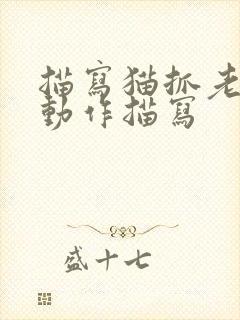 描寫猫抓老
動作描寫
盛十七